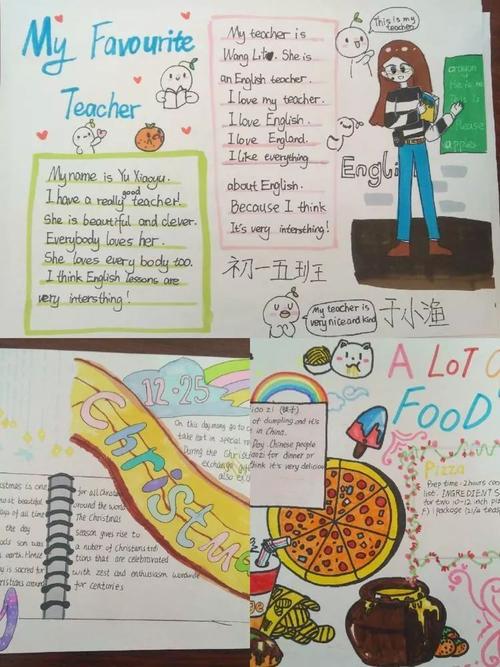 My Favourite
Teacher
My name is Yu Xiaoyu.
I have a really good teacher!
She is beautiful and clever.
Everybody loves her.
She loves every body too.
I think English lessons are
very intersthing!
My teacher is
Wang Li. She is
an English teacher.
I love my teacher.
I love English.
I love England.
I like everything
about English.
Because I think
It's very intersthing!
This is my
teacher
English
please
apples
初一五班王
My teacher is
very nice and kind
于小渔
12.25
Christmas
On this day many go to c
take part in special re
During the Christ
exchange
also ex
for all Christ
around the world
The Christmas
season gives rise to
a nuber of Christmas trdi
tions that are celebrorated
with zest and enthusiasm worldwide
for centuries
the day
A LOT O
FOOD
of dumpling and it's
in China.
Day Chinese people
for dinner or
think it's very delicious
Pizza
Prep time: 2hours con
list. INGREDIENT S
for two 10-12 inch piz
1 package